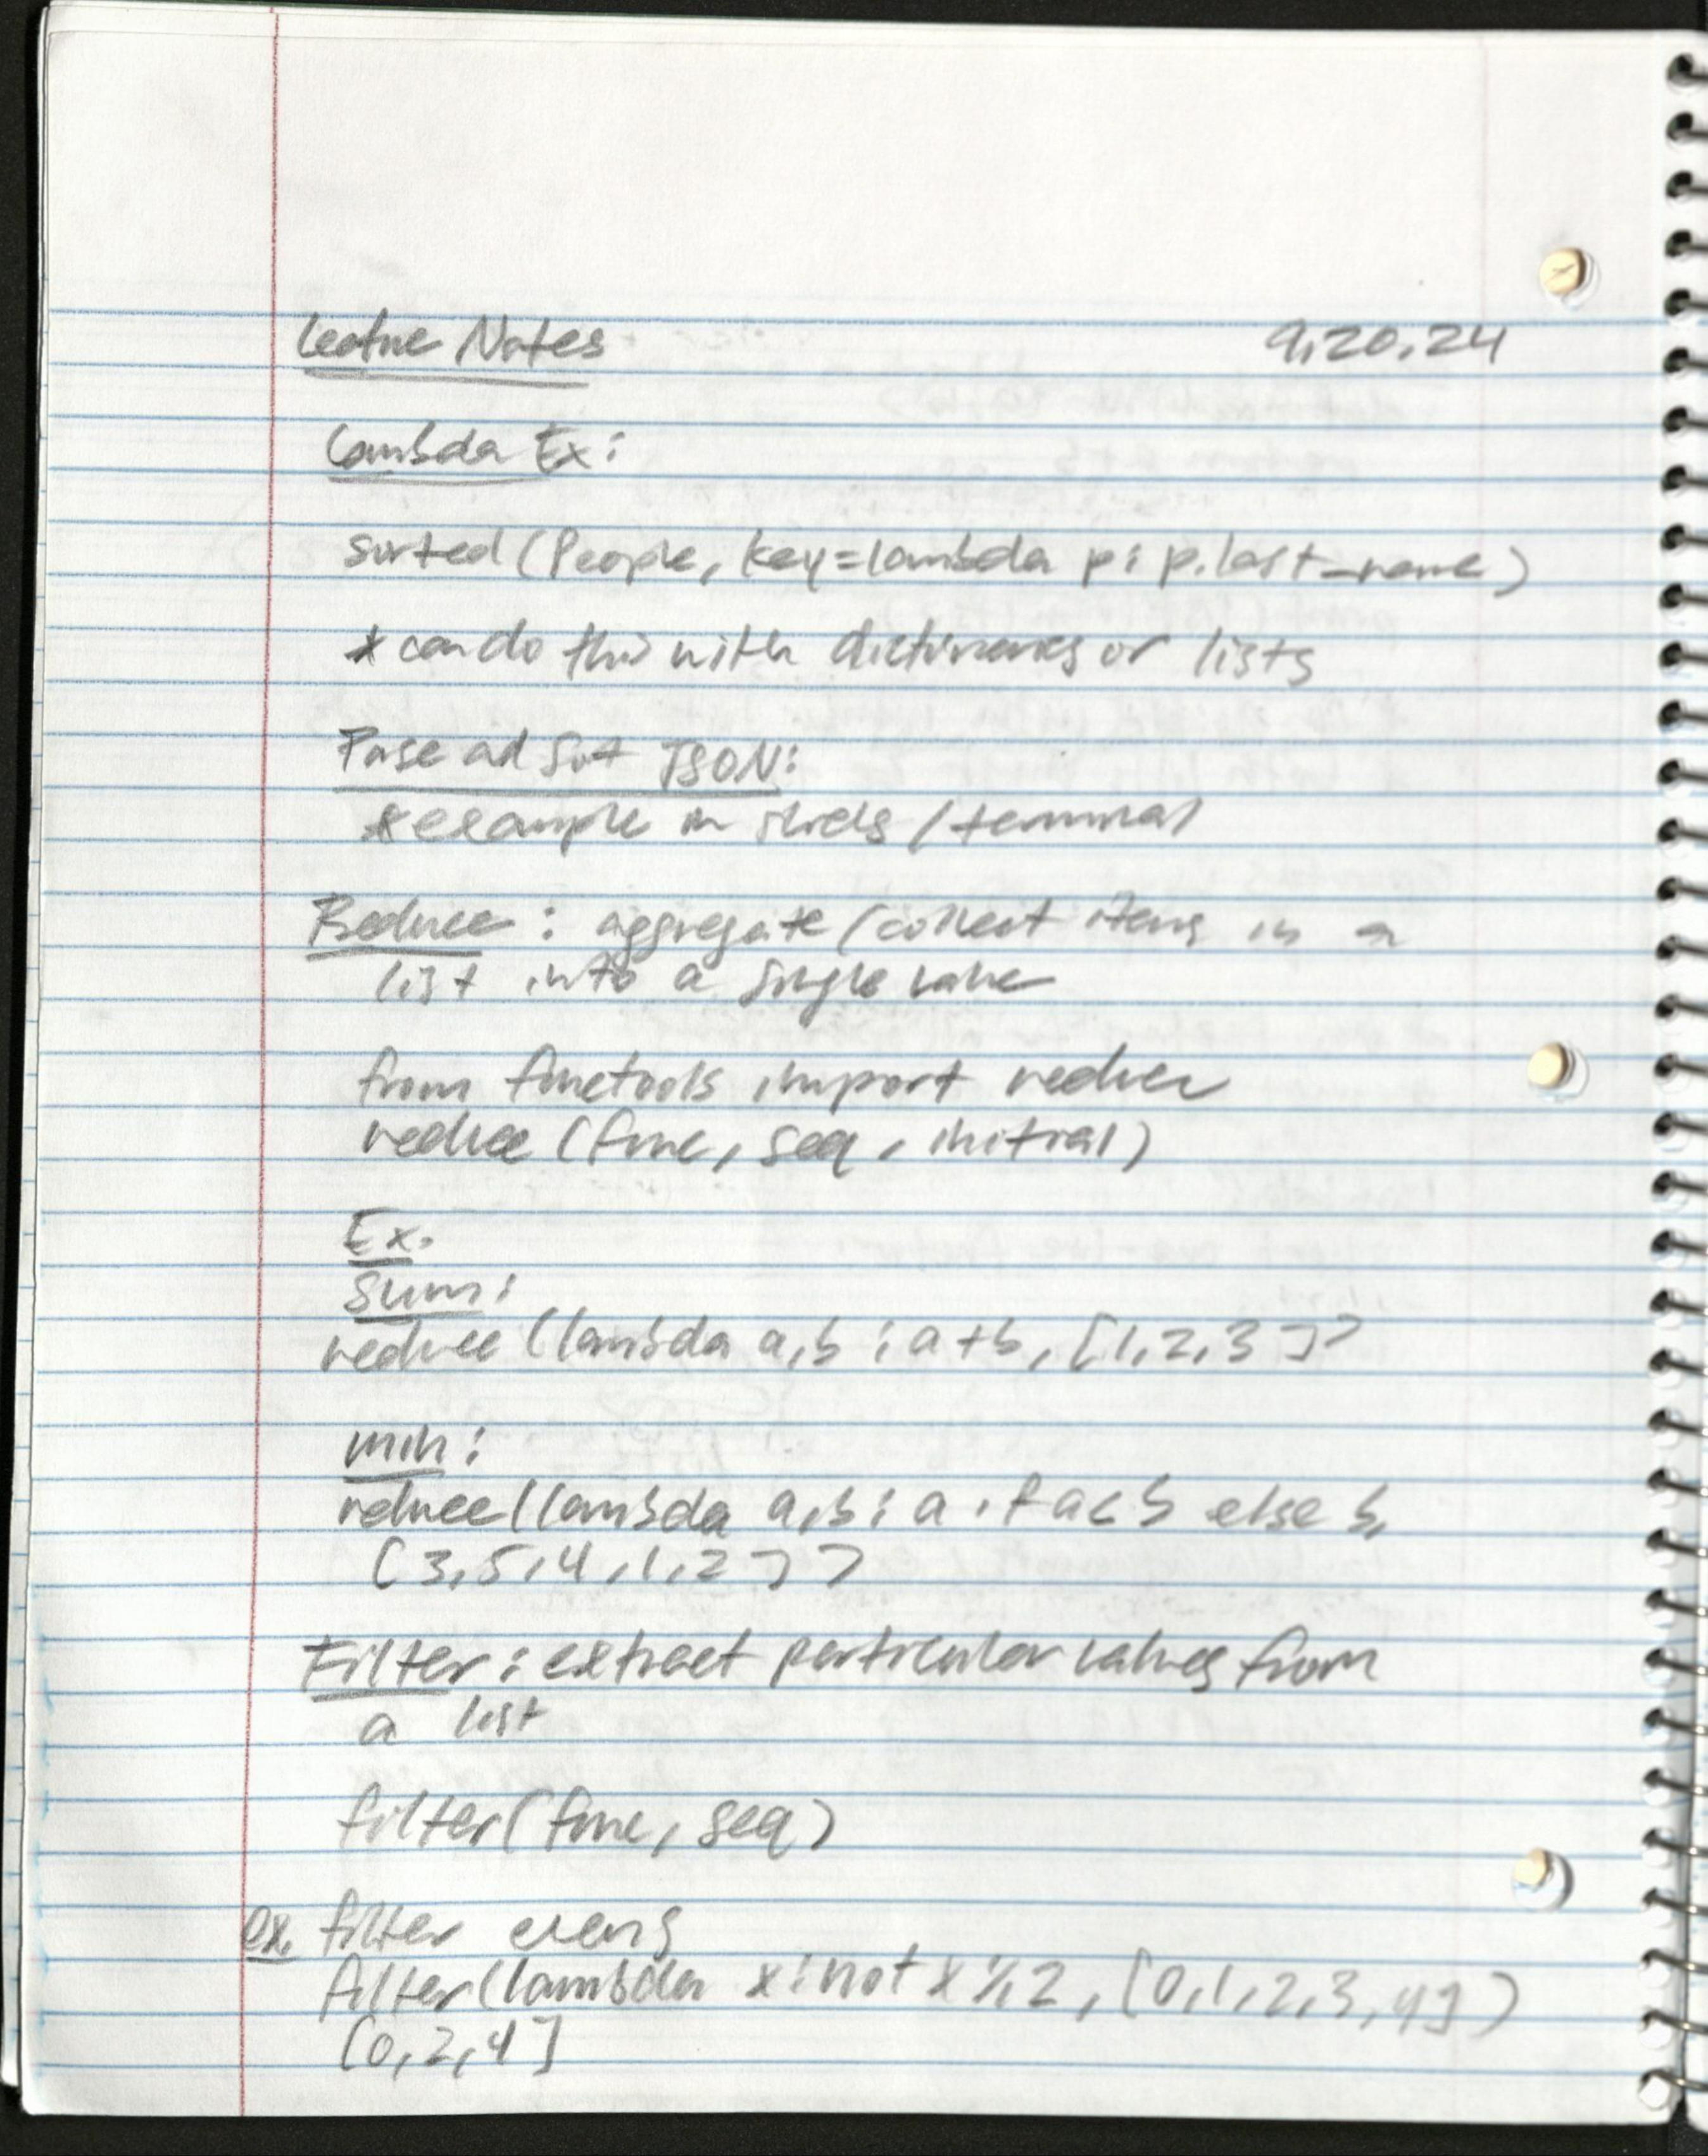 Lecture Notes 9.20.24
Lambda Ex:
sorted(People, key=lambda p: p.last_name)
* can do this with dictionaries or lists
Parse and Sort JSON:
* example in slides / terminal
Reduce: aggregate/collect items in a
list into a single value
from functools import reduce
reduce(func, seq, initial)
Ex.
Sum:
reduce(lambda a,b: a+b, [1,2,3])
min:
reduce(lambda a,b: a if a<b else b,
[3,5,4,1,2])
Filter: extract particular values from
a list
filter(func, seq)
ex. filter evens
filter(lambda x: not x%2, [0,1,2,3,4])
[0,2,4]